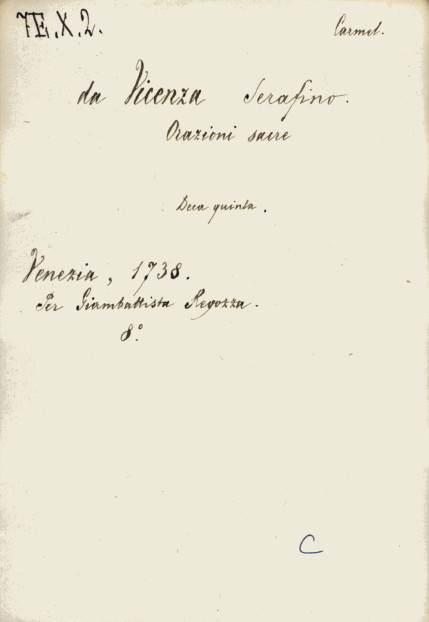 7E.X.2.
Carmel.
da Vicenza Serafino.
Orazioni sacre
Deca quinta.
Venezia, 1738.
Per Giambattista Regozza.
8°
C